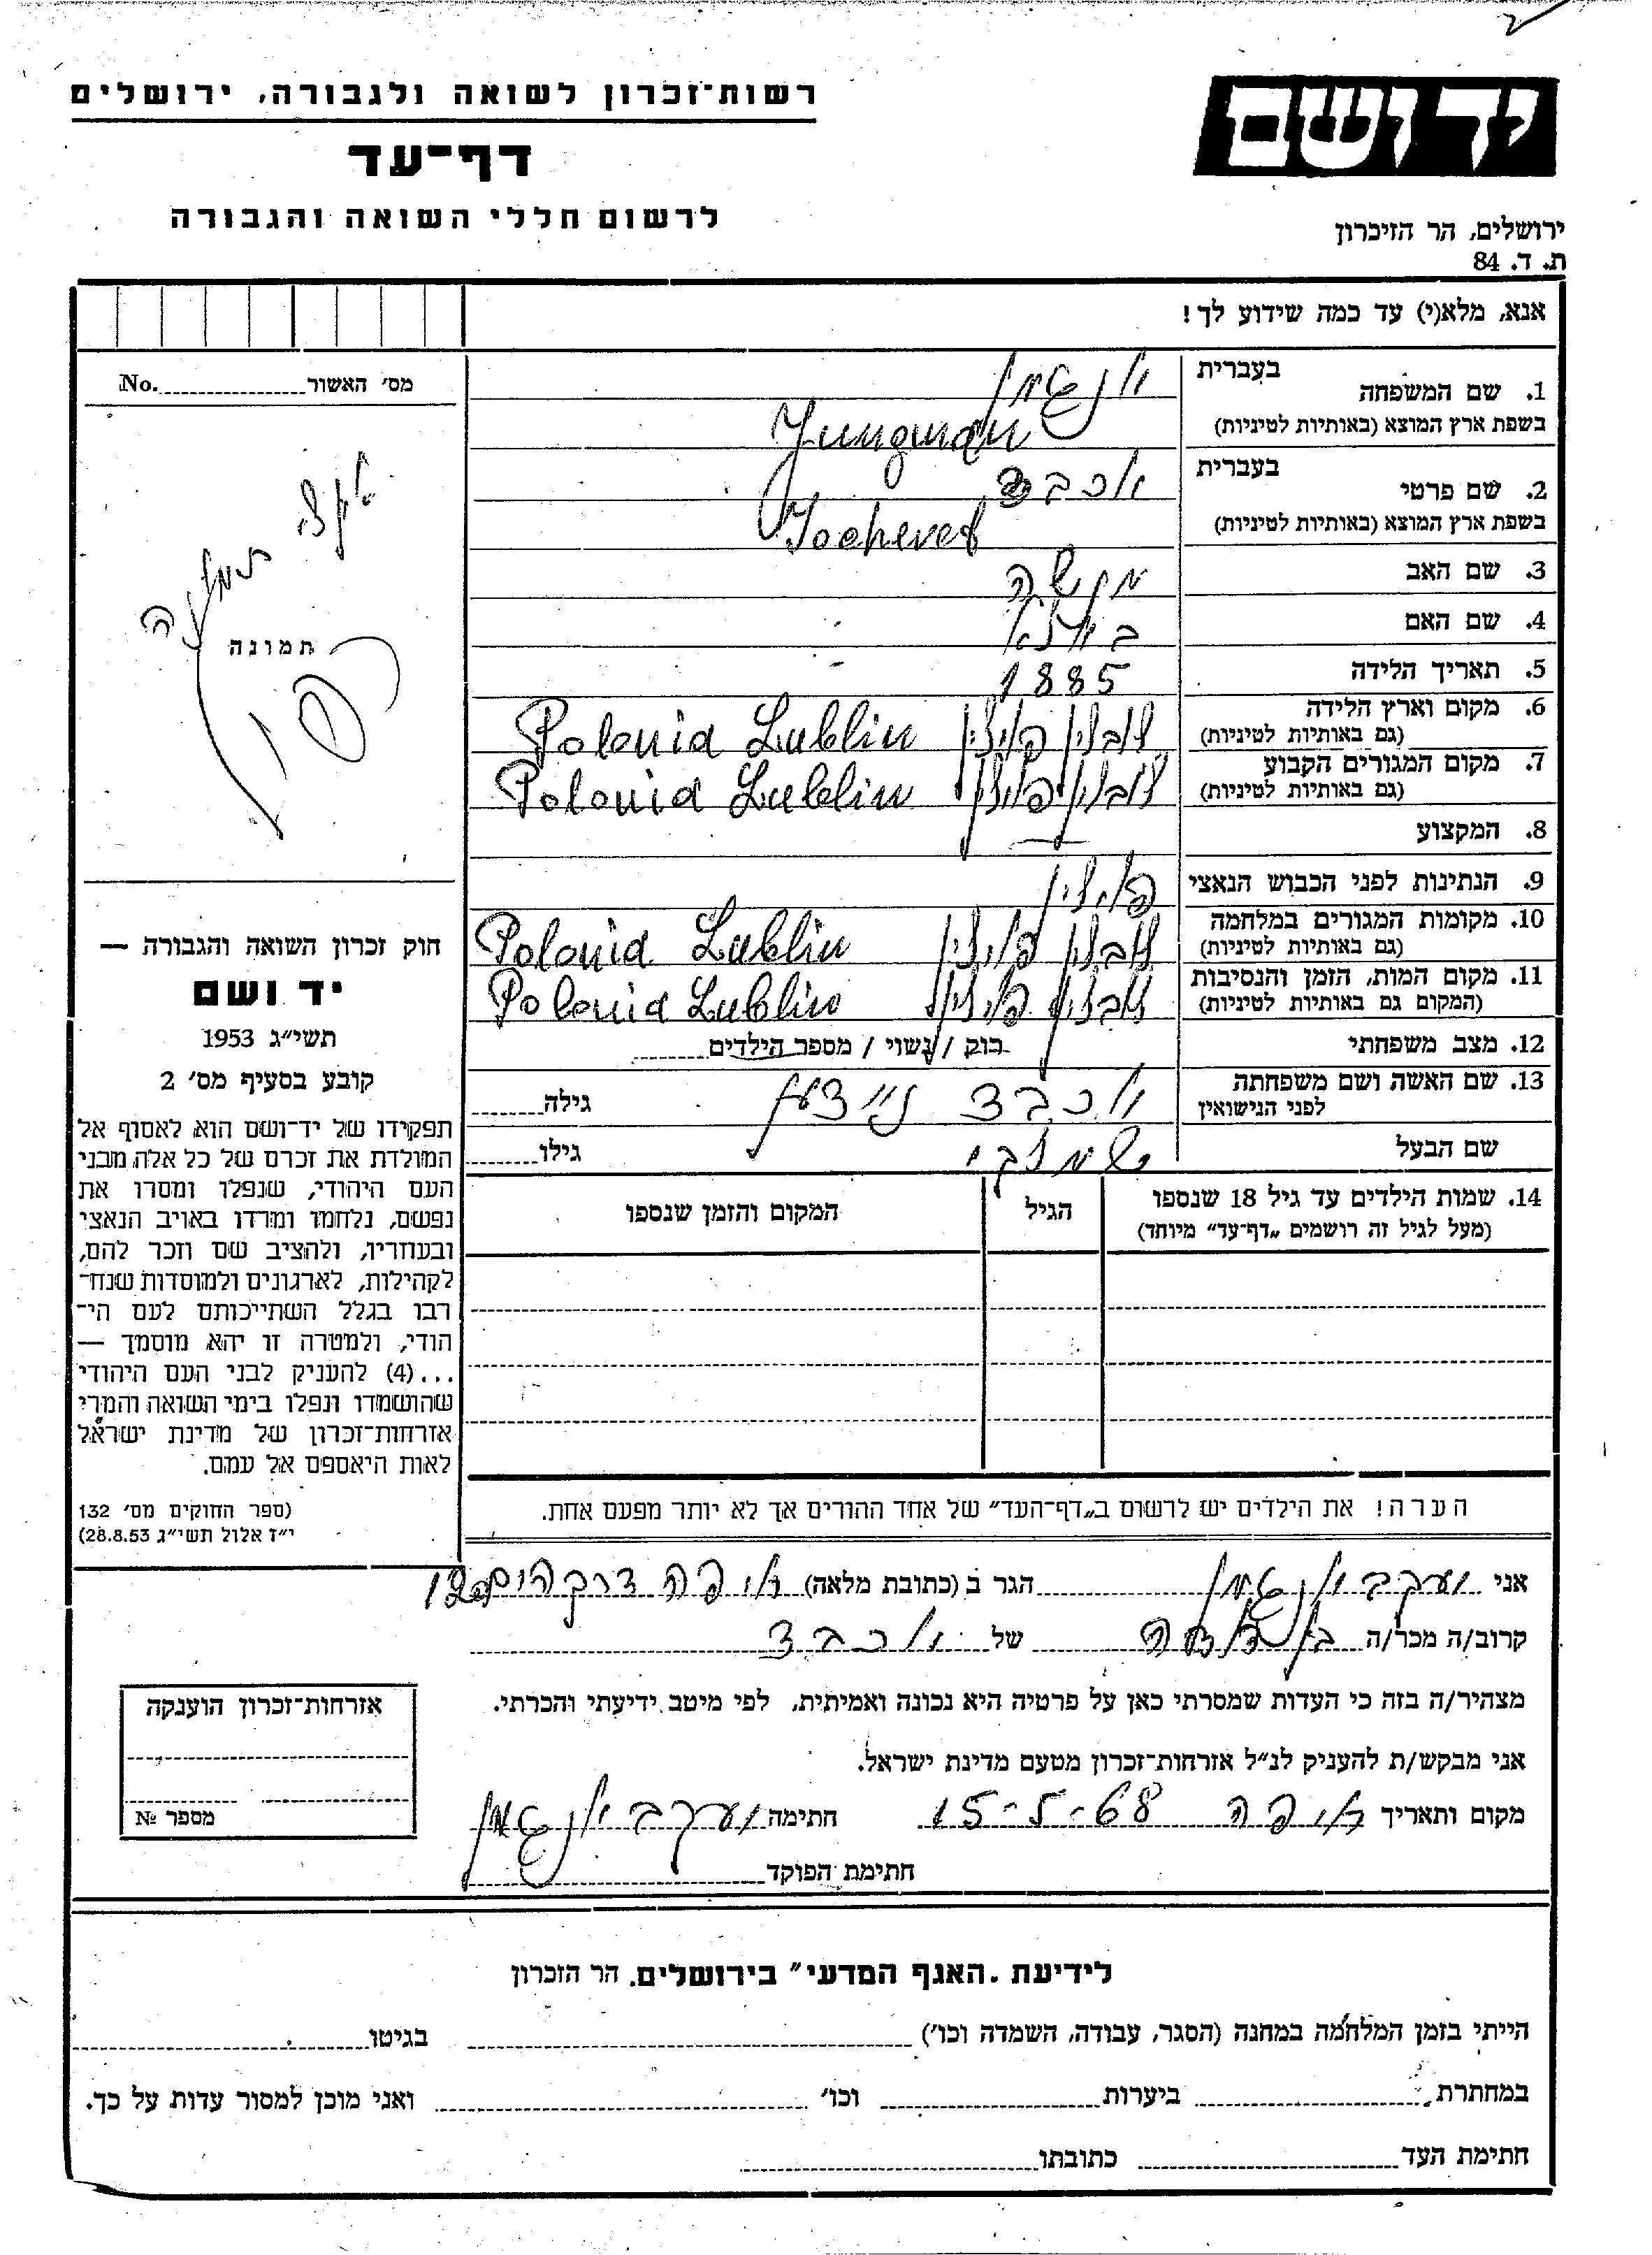 יד ושם
רשות־זכרון לשואה ולגבורה, ירושלים
דף־עד
לרשום חללי השואה והגבורה
ירושלים, הר הזיכרון
ת. ד. 84
אנא, מלא(י) עד כמה שידוע לך!
1. שם המשפחה בעברית יונגמן
בשפת ארץ המוצא (באותיות לטיניות) Jungman
2. שם פרטי בעברית יוכבד
בשפת ארץ המוצא (באותיות לטיניות) Jocheved
3. שם האב משה
4. שם האם
5. תאריך הלידה 1885
6. מקום וארץ הלידה לובלין פולין Polonia Lublin
(גם באותיות לטיניות)
7. מקום המגורים הקבוע לובלין פולין Polonia Lublin
(גם באותיות לטיניות)
8. המקצוע —
9. הנתינות לפני הכבוש הנאצי פולין
10. מקומות המגורים במלחמה לובלין פולין Polonia Lublin
(גם באותיות לטיניות)
11. מקום המות, הזמן והנסיבות לובלין פולין Polonia Lublin
(המקום גם באותיות לטיניות)
12. מצב משפחתי רוק / נשוי / מספר הילדים
13. שם האשה ושם משפחתה יוכבד גילה
לפני הנישואין
שם הבעל גילו
14. שמות הילדים עד גיל 18 שנספו הגיל המקום והזמן שנספו
(מעל לגיל זה רושמים „דף־עד" מיוחד)
הערה! את הילדים יש לרשום ב„דף־העד" של אחד ההורים אך לא יותר מפעם אחת.
מס׳ האשור No.
תמונה
חוק זכרון השואה והגבורה —
יד ושם
תשי״ג 1953
קובע בסעיף מס׳ 2
תפקידו של יד־ושם הוא לאסוף אל
המולדת את זכרם של כל אלה מבני
העם היהודי, שנפלו ומסרו את
נפשם, נלחמו ומרדו באויב הנאצי
ובעוזריו, ולהציב שם וזכר להם,
לקהילות, לארגונים ולמוסדות שנח־
רבו בגלל השתייכותם לעם הי־
הודי, ולמטרה זו יהא מוסמך —
...(4) להעניק לבני העם היהודי
שהושמדו ונפלו בימי השואה והמרי
אזרחות־זכרון של מדינת ישראל
לאות היאספם אל עמם.
(ספר החוקים מס׳ 132
י״ז אלול תשי״ג 28.8.53)
אני יעקב יונגמן הגר ב (כתובת מלאה)
קרוב/ה מכר/ה של יוכבד
מצהיר/ה בזה כי העדות שמסרתי כאן על פרטיה היא נכונה ואמיתית, לפי מיטב ידיעתי והכרתי.
אני מבקש/ת להעניק לנ״ל אזרחות־זכרון מטעם מדינת ישראל.
מקום ותאריך 15-5-68 חתימה יעקב יונגמן
חתימת הפוקד
אזרחות־זכרון הוענקה
מספר №
לידיעת „האגף המדעי" בירושלים, הר הזכרון
הייתי בזמן המלחמה במחנה (הסגר, עבודה, השמדה וכו׳) בגיטו
במחתרת ביערות וכו׳ ואני מוכן למסור עדות על כך.
חתימת העד כתובתו